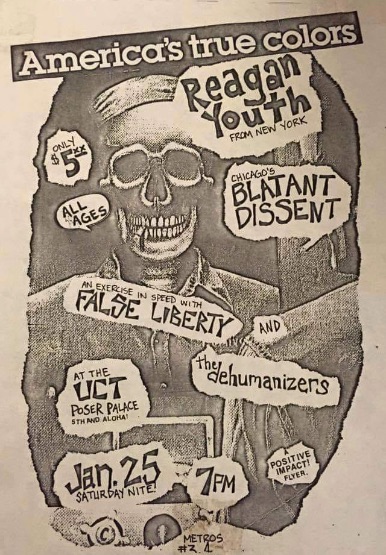 America's true colors
Reagan
Youth
FROM NEW YORK
ONLY
$5xx
CHICAGO'S
BLATANT
DISSENT
ALL
AGES
AN EXERCISE IN SPEED WITH
FALSE LIBERTY
AND
the
dehumanizers
AT THE
UCT
POSER PALACE
5TH AND ALOHA!
Jan. 25
SATURDAY NITE!
7PM
A
POSITIVE
IMPACT!
FLYER.
©
METROS